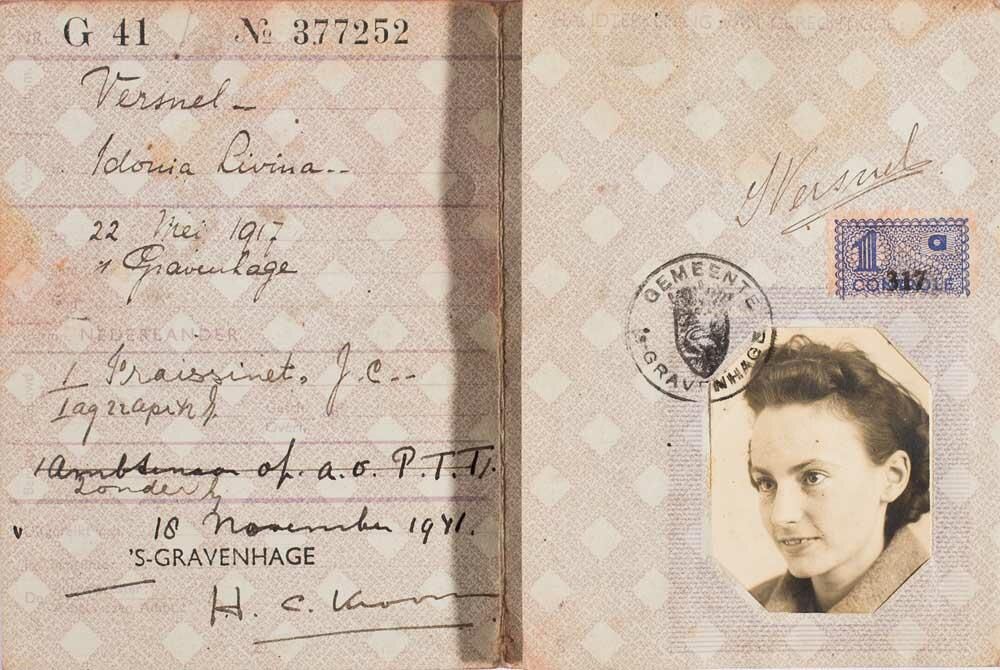 G 41 № 377252
Versnel
Idonia Livina
22 Mei 1917
's Gravenhage
NEDERLANDER
I Fraissinet, J.C.
Ambtenaar op a.o. P.T.T.
Zonder
v 18 November 1941.
'S-GRAVENHAGE
H. C.
Versnel
1 a
317
CONTROLE
GEMEENTE
'S-GRAVENHAGE